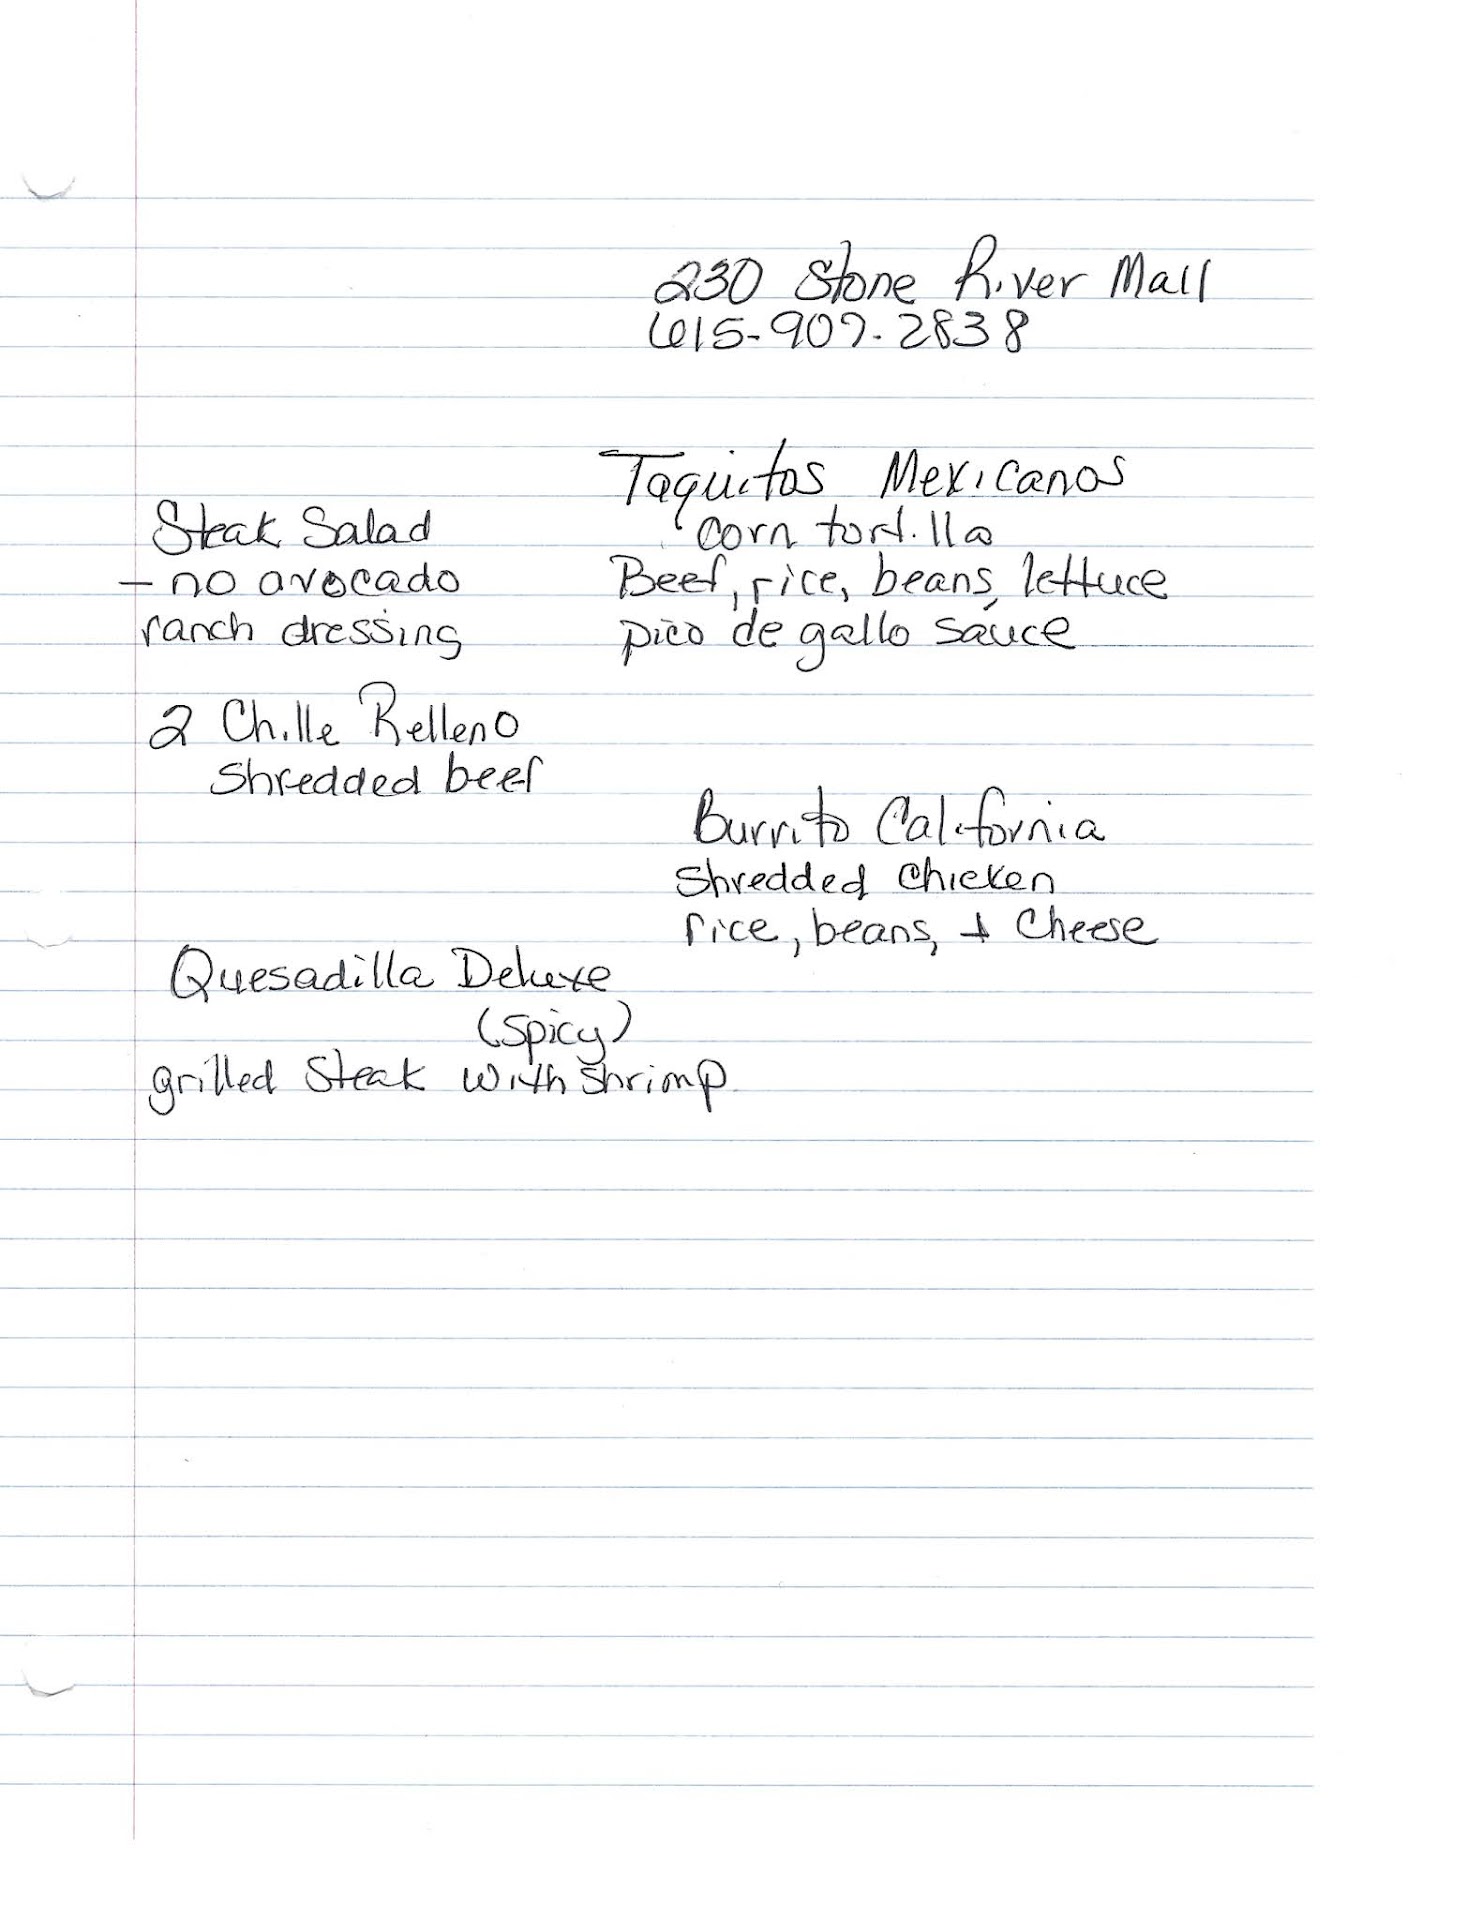 230 Stone River Mall
615-907-2838
Taquitos Mexicanos
corn tortilla
Beef, rice, beans, lettuce
pico de gallo sauce
Steak Salad
- no avocado
ranch dressing
2 Chille Relleno
shredded beef
Burrito California
Shredded Chicken
rice, beans, + Cheese
Quesadilla Deluxe
(spicy)
grilled Steak with shrimp